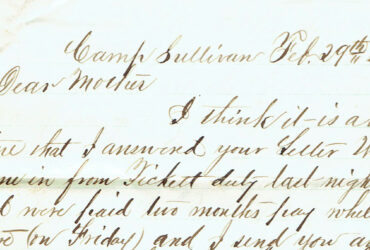 Camp Sullivan Feb. 29th
Dear Mother
I think it is a
that I answered your Letter W
in from Pickett duty last nigh
were paid two months pay whe
(on Friday) and I send you a